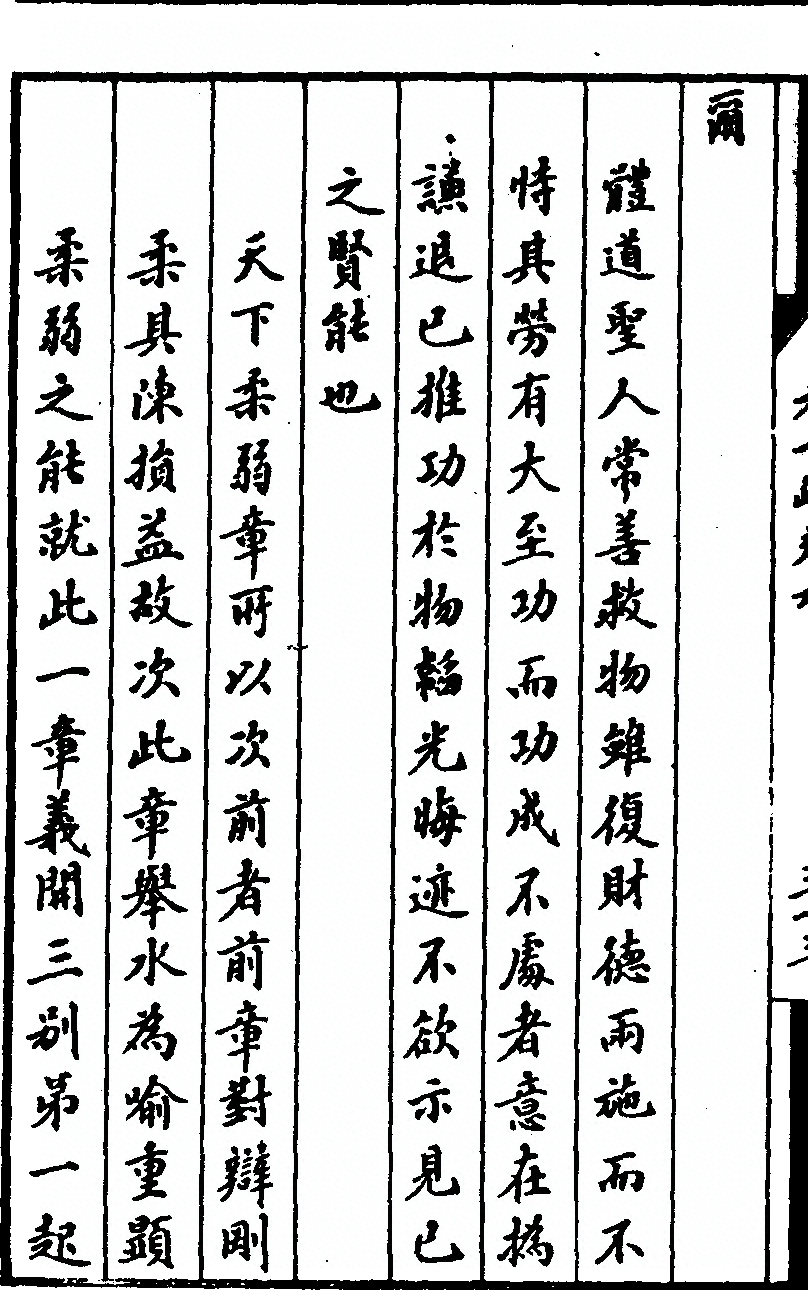 爾
體道聖人常善救物雖復財德兩施而不
恃其勞有大至功而功成不處者意在撝
謙退已推功於物韜光晦迹不欲示見已
之賢能也
天下柔弱章所以次前者前章對辯剛
柔具陳損益故次此章舉水為喻重顯
柔弱之能就此一章義開三别第一起